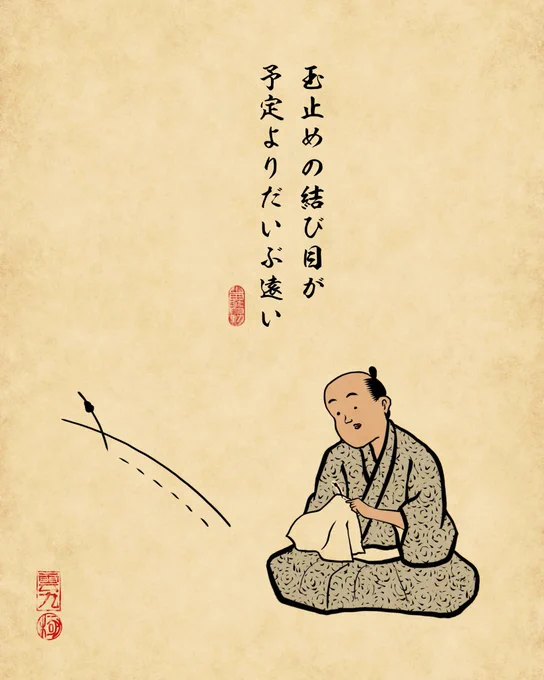 玉止めの結び目が
予定よりだいぶ遠い